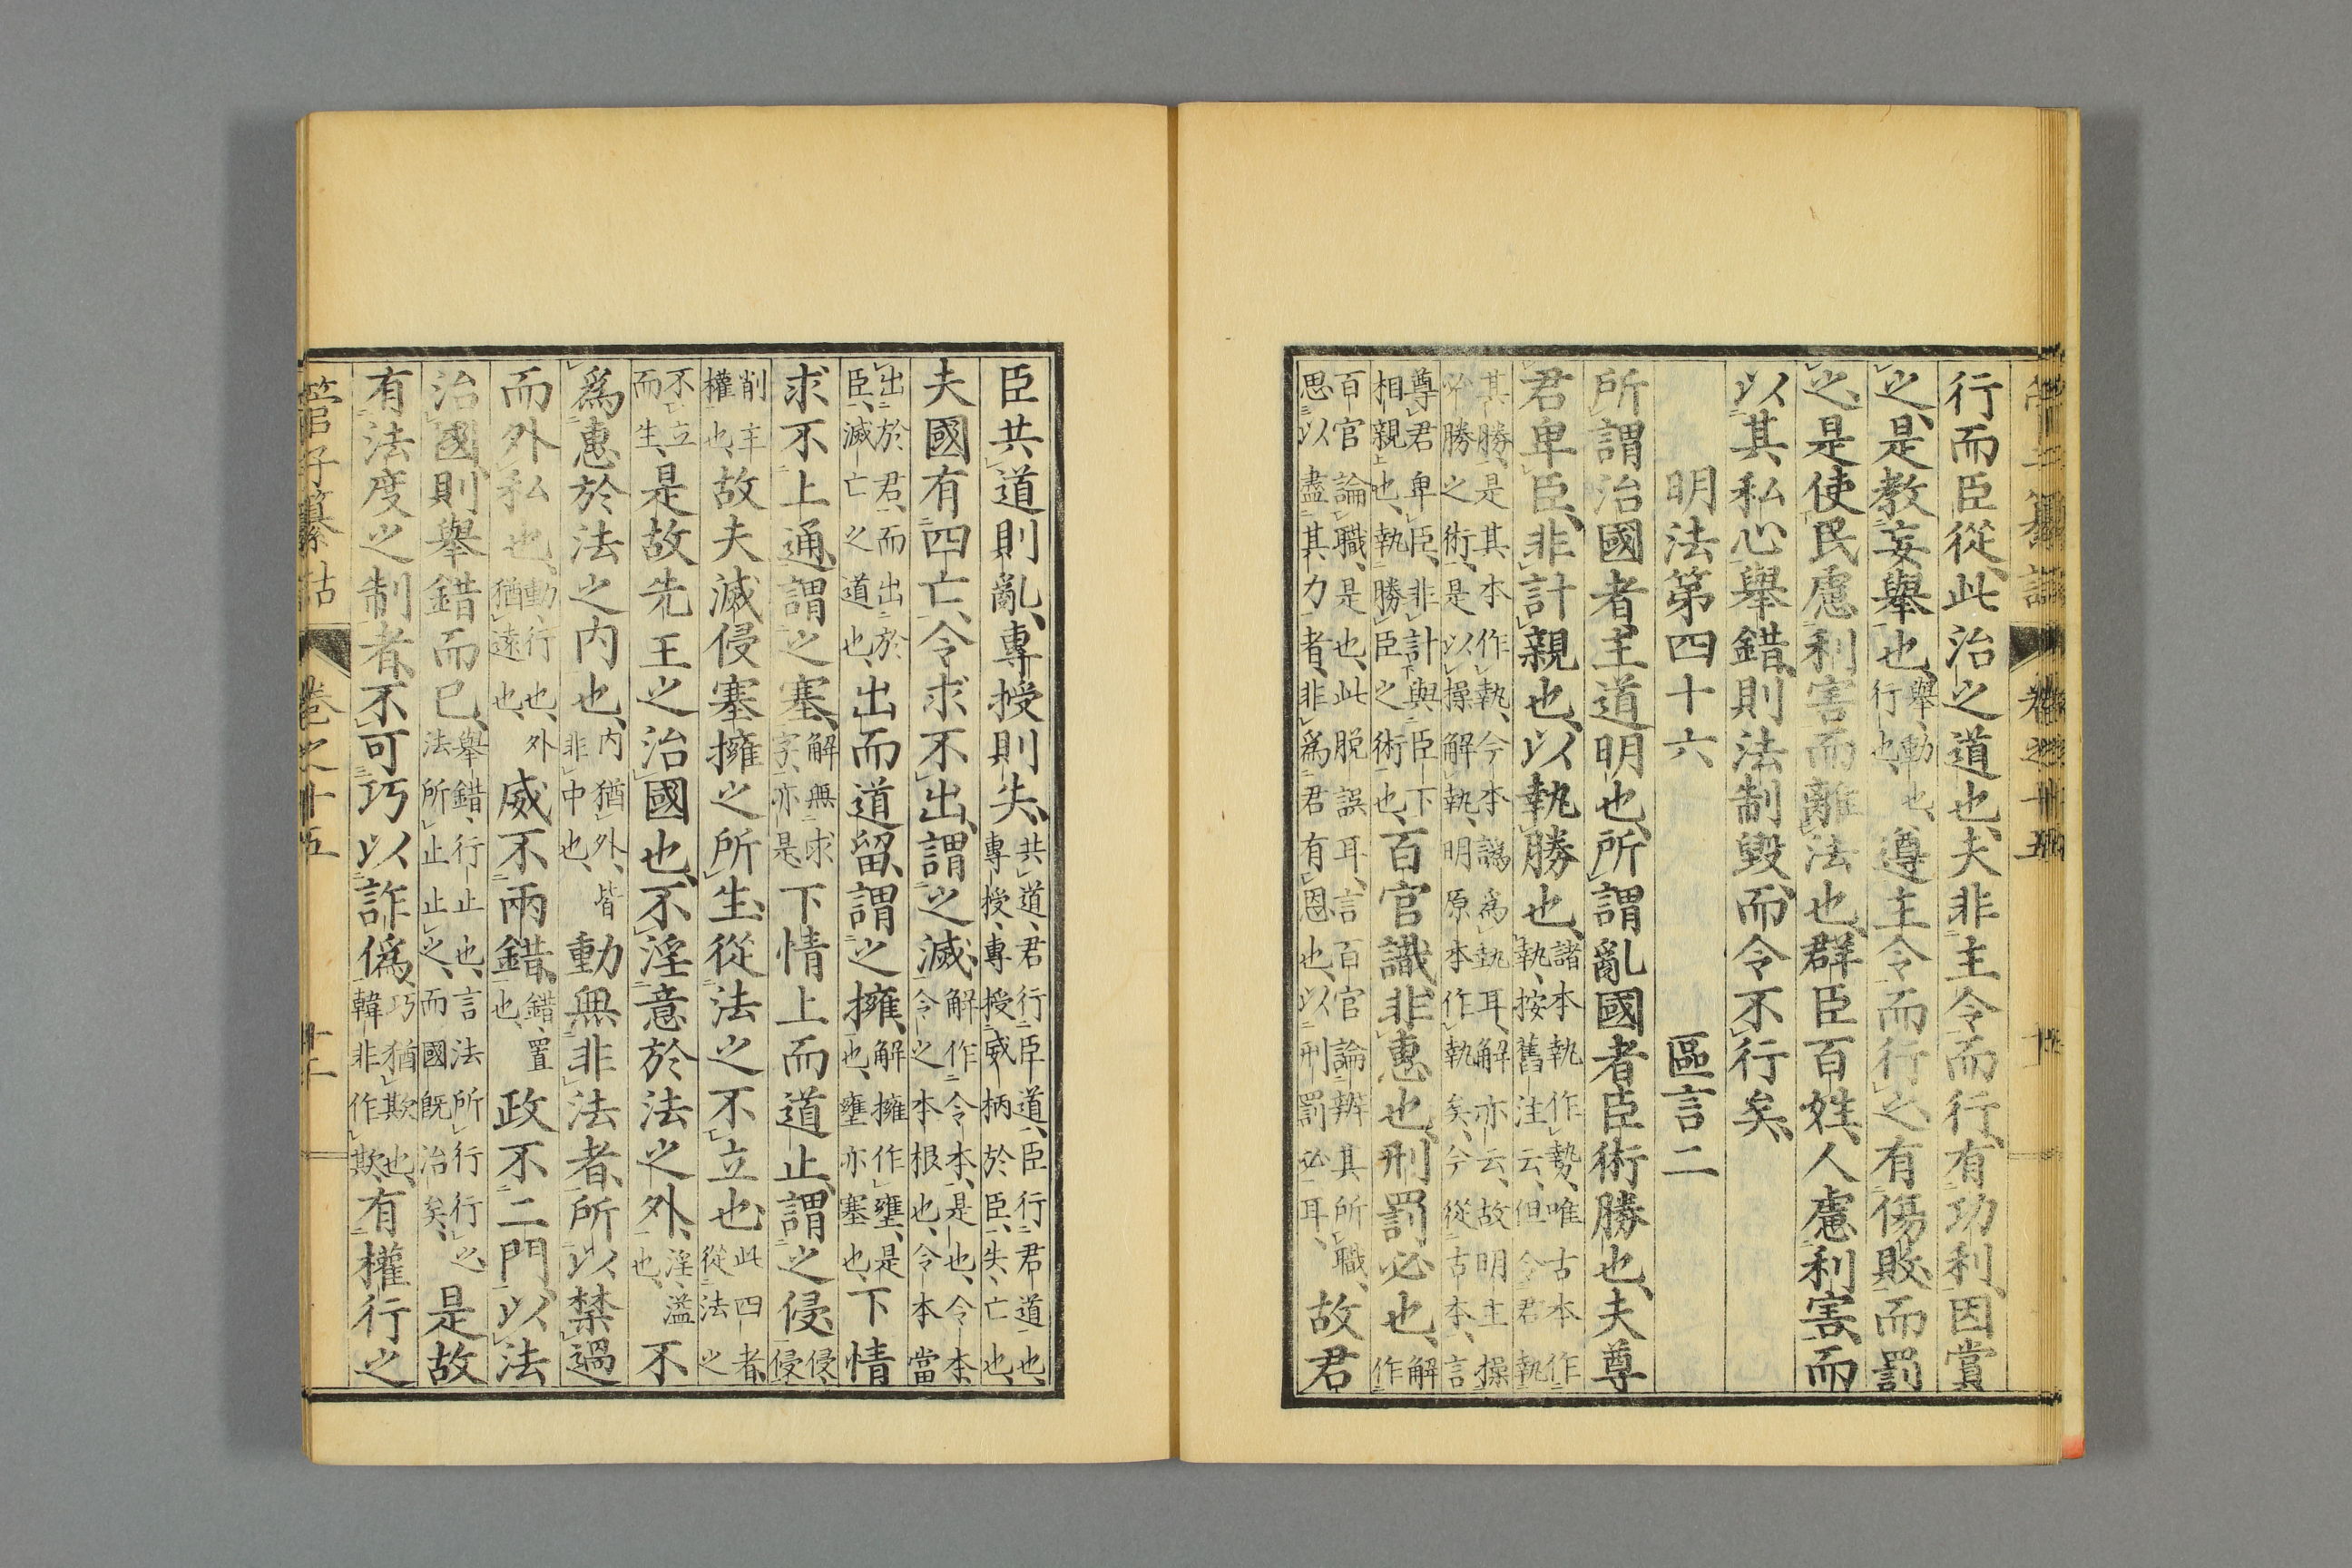 行而臣從、此治之道也、夫非主令而行、有功利、因賞
之、是教妄舉也、舉、動也、行也、遵主令而行之、有傷敗、而罰
之、是使民慮利害而離法也、群臣百姓、人慮利害、而
以其私心舉錯、則法制毀、而令不行矣、
明法第四十六 區言二
所謂治國者、主道明也、所謂亂國者、臣術勝也、夫尊
君卑臣、非計親也、以執勝也、諸本執作勢、唯古本作執、按舊注云、但今君執
其勝、是其本作執、今本譌爲執耳、解亦云、故明主操必勝之術、是以操解執、明原本作執矣、今從古本、言
尊君卑臣、非計與臣下相親也、執勝臣之術也、百官識、非惠也、刑罰必也、解作
百官論職、是也、此脫誤耳、言百官論辨其所職、思以盡其力者、非爲君有恩也、以刑罰必耳、故君
臣共道則亂、專授則失、共道、君行臣道、臣行君道也、專授、專授威柄於臣、失、亡也、
夫國有四亡、令求不出、謂之滅、解作令本、是也、令本、令之本根也、令本當
出於君、而出於臣、滅亡之道也、出而道留、謂之擁、解擁作壅、是也、壅亦塞也、下情
求不上通、謂之塞、解無求字、亦是、下情上而道止、謂之侵、侵、侵
削主權也、故夫滅侵塞擁之所生、從法之不立也、此四者、從法之
不立而生、是故先王之治國也、不淫意於法之外、淫、溢也、不
爲惠於法之内也、内猶外、皆非中也、動無非法者、所以禁過
而外私也、動、行也、外猶遠也、威不兩錯、錯、置也、政不二門、以法
治國、則舉錯而已、舉錯、行止也、言法所行行之、法所止止之、而國既治矣、是故
有法度之制者、不可巧以詐僞、巧猶欺也、韓非作欺、有權行之
管子纂詁 卷之十五